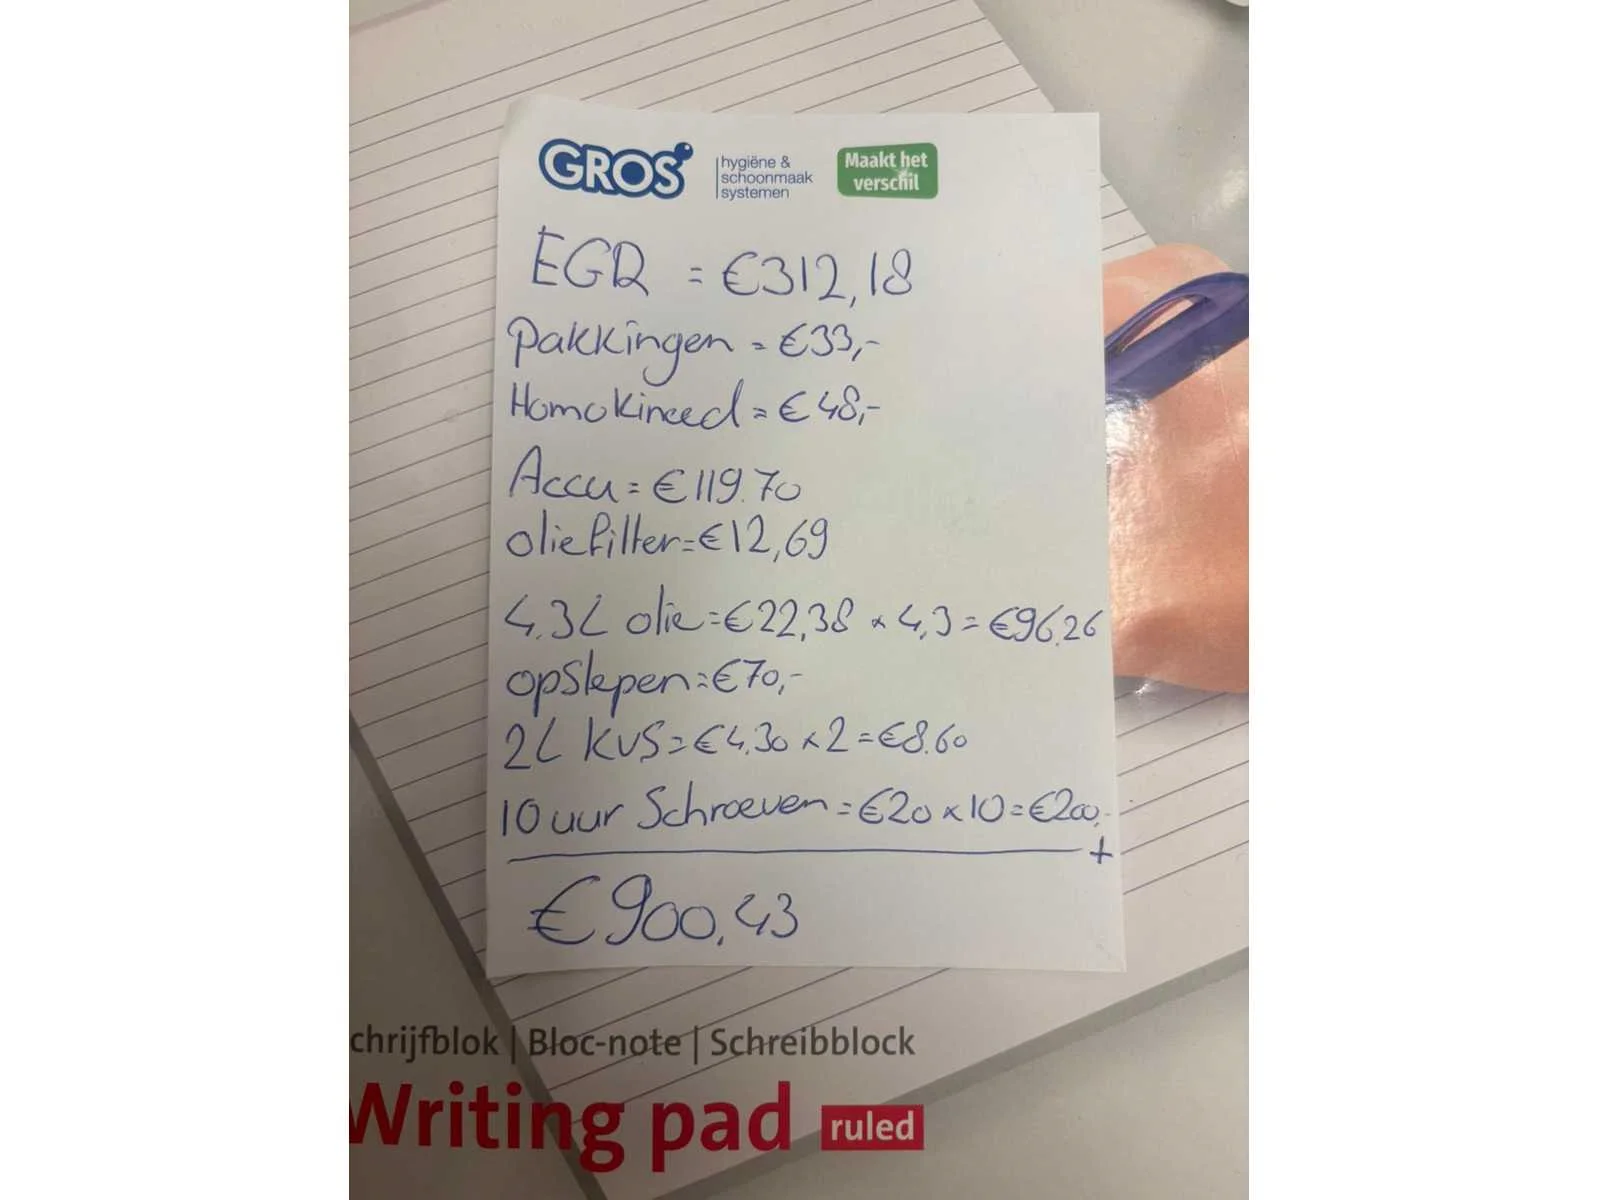 GROS
hygiëne &
schoonmaak
systemen
Maakt het
verschil
EGR = €312,18
pakkingen = €33,-
Homokineed = €48,-
Accu = €119.70
oliefilter = €12,69
4.3L olie = €22,38 x 4,3 = €96.26
opslepen = €70,-
2L KVS = €4.30 x 2 = €8.60
10 uur Schroeven = €20 x 10 = €200,-
+
€900,43
chrijfblok | Bloc-note | Schreibblock
Writing pad ruled